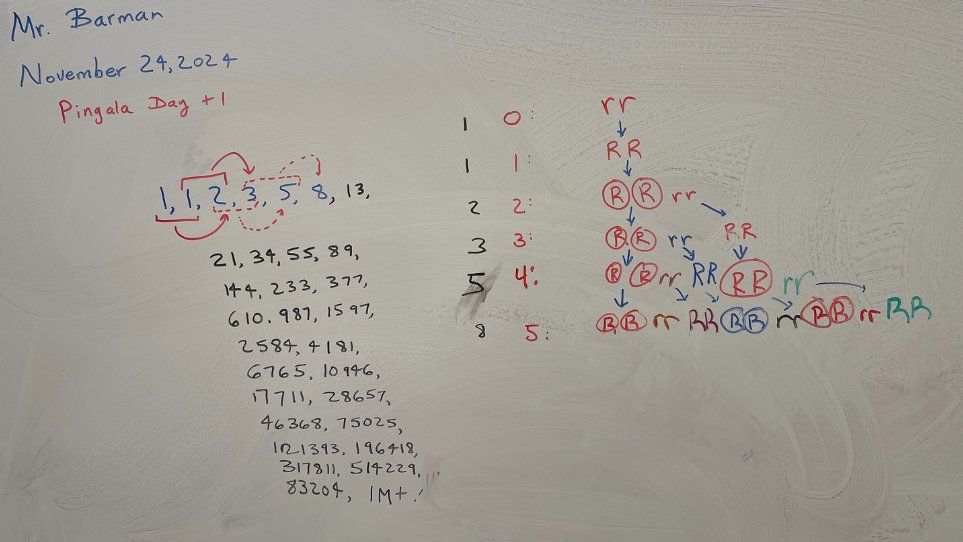 Mr. Barman
November 24, 2024
Pingala Day +1
1, 1, 2, 3, 5, 8, 13,
21, 34, 55, 89,
144, 233, 377,
610, 987, 1597,
2584, 4181,
6765, 10946,
17711, 28657,
46368, 75025,
121393, 196418,
317811, 514229,
83204, 1M+!
1 0: rr
1 1: RR
2 2: RR rr
3 3: RR rr RR
5 4: RR rr RR RR rr
8 5: RR rr RR RR rr RR rr RR